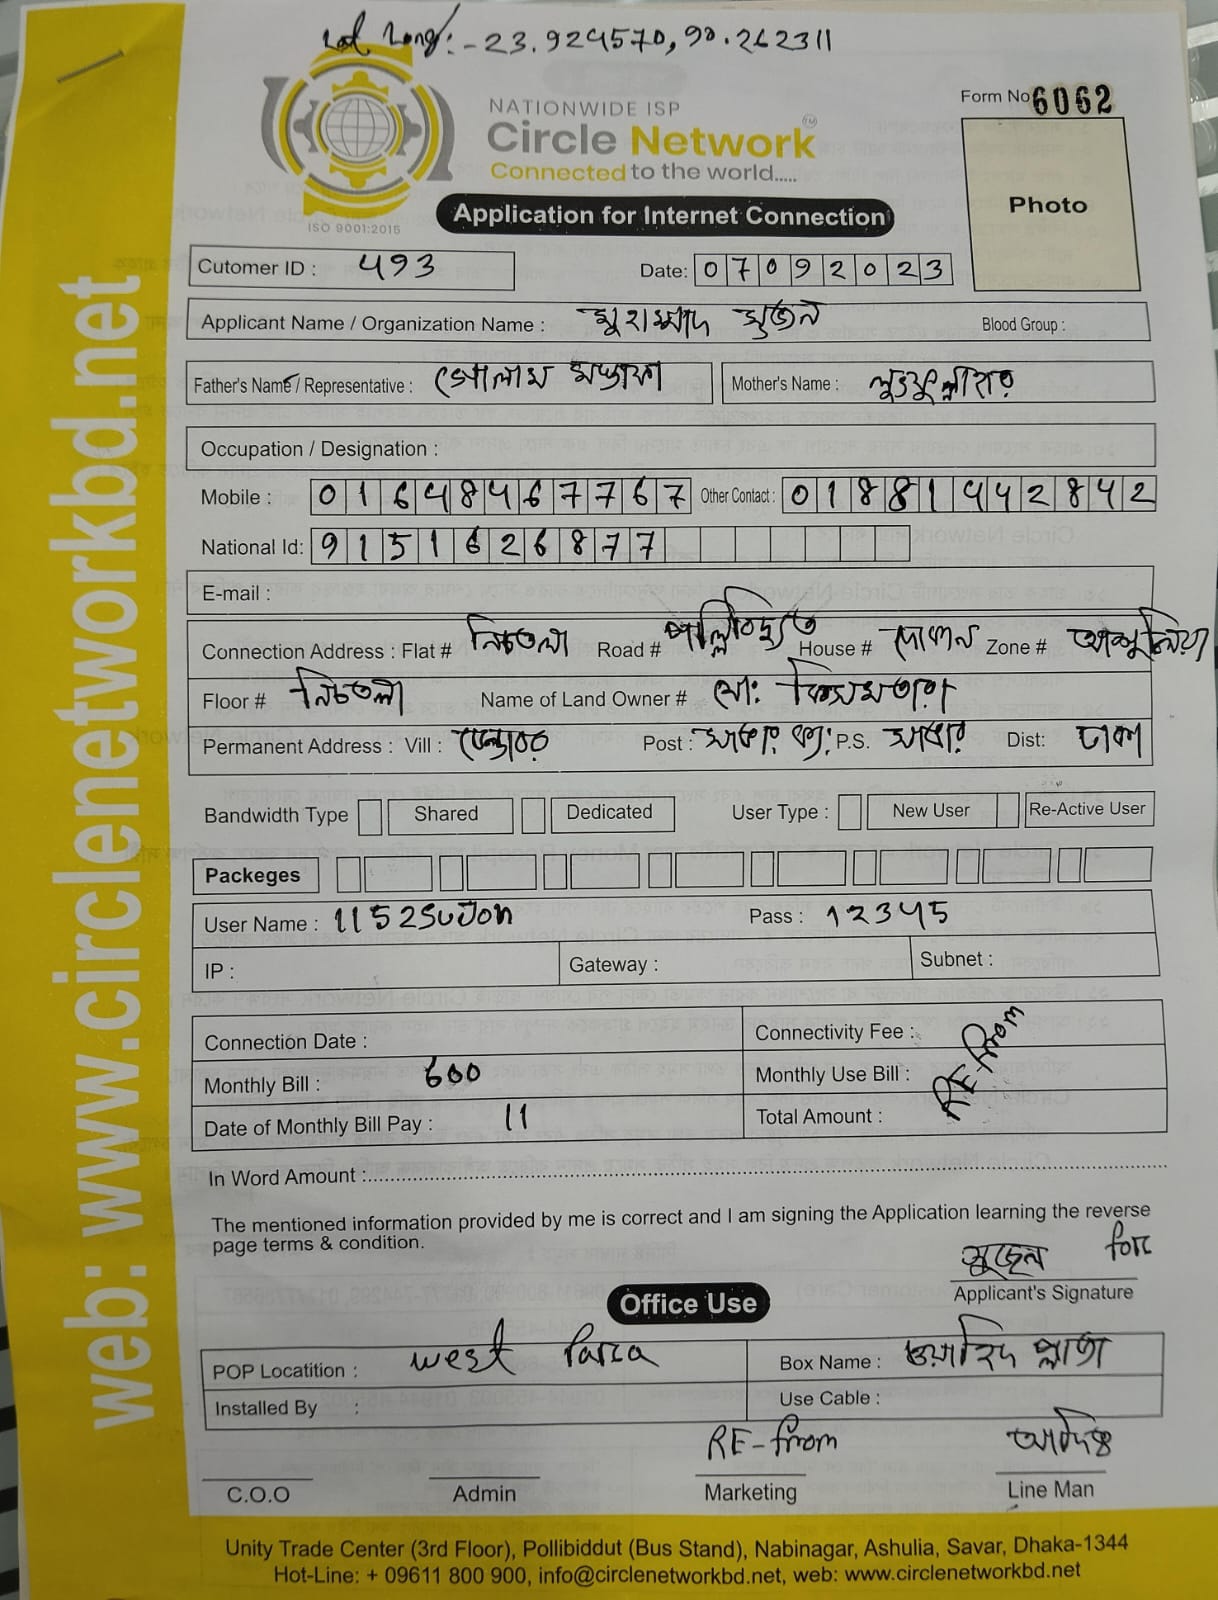 Lat Long:- 23.924570, 90.262311
NATIONWIDE ISP
Circle Network
Connected to the world.....
ISO 9001:2015
Form No 6062
Photo
Application for Internet Connection
Cutomer ID : 493
Date: 07092023
Applicant Name / Organization Name : মুহাম্মাদ সুজন
Blood Group :
Father's Name / Representative : গোলাম মস্তফা
Mother's Name :
Occupation / Designation :
Mobile : 01648467767 Other Contact : 01881442842
National Id: 9151626877
E-mail :
Connection Address : Flat # নিচতলা Road # পল্লিবিদ্যুত House # দোকান Zone # আশুলিয়া
Floor # নিচতলা Name of Land Owner # মো:
Permanent Address : Vill : Post : P.S. সাভার Dist: ঢাকা
Bandwidth Type Shared Dedicated User Type : New User Re-Active User
Packeges
User Name : 1152SuJon Pass : 12345
IP : Gateway : Subnet :
Connection Date : Connectivity Fee :
RE-from
Monthly Bill : 600 Monthly Use Bill :
Date of Monthly Bill Pay : 11 Total Amount :
In Word Amount :
The mentioned information provided by me is correct and I am signing the Application learning the reverse
page terms & condition.
সুজন for
Applicant's Signature
Office Use
POP Locatition : west Para Box Name : ওয়াহিদ প্লাজা
Installed By : Use Cable :
RE-from
C.O.O Admin Marketing Line Man
Unity Trade Center (3rd Floor), Pollibiddut (Bus Stand), Nabinagar, Ashulia, Savar, Dhaka-1344
Hot-Line: + 09611 800 900, info@circlenetworkbd.net, web: www.circlenetworkbd.net
web: www.circlenetworkbd.net